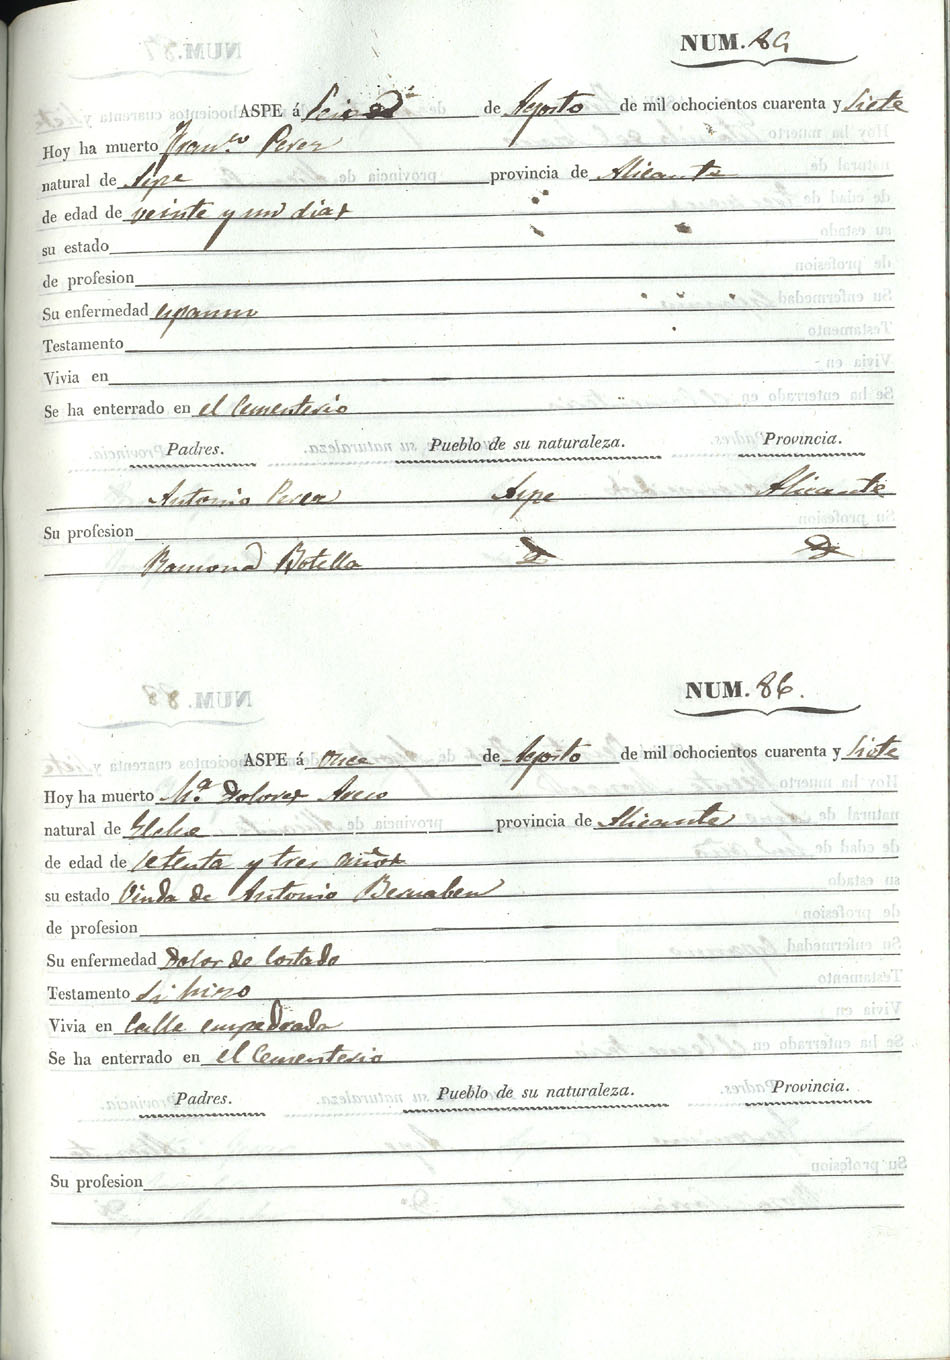 NUM. 85
ASPE á Seis de Agosto de mil ochocientos cuarenta y Siete
Hoy ha muerto Fran.co Perez
natural de Aspe provincia de Alicante
de edad de veinte y un dias
su estado
de profesion
Su enfermedad espasmo
Testamento
Vivia en
Se ha enterrado en el Cementerio
Padres. Pueblo de su naturaleza. Provincia.
Antonio Perez Aspe Alicante
Su profesion
Ramona Botella
NUM. 86.
ASPE á Once de Agosto de mil ochocientos cuarenta y Siete
Hoy ha muerto M.a Dolores
natural de Elche provincia de Alicante
de edad de setenta y tres años
su estado Viuda de Antonio Bernabeu
de profesion
Su enfermedad Dolor de Costado
Testamento Si hizo
Vivia en Calle empedrada
Se ha enterrado en el Cementerio
Padres. Pueblo de su naturaleza. Provincia.
Su profesion